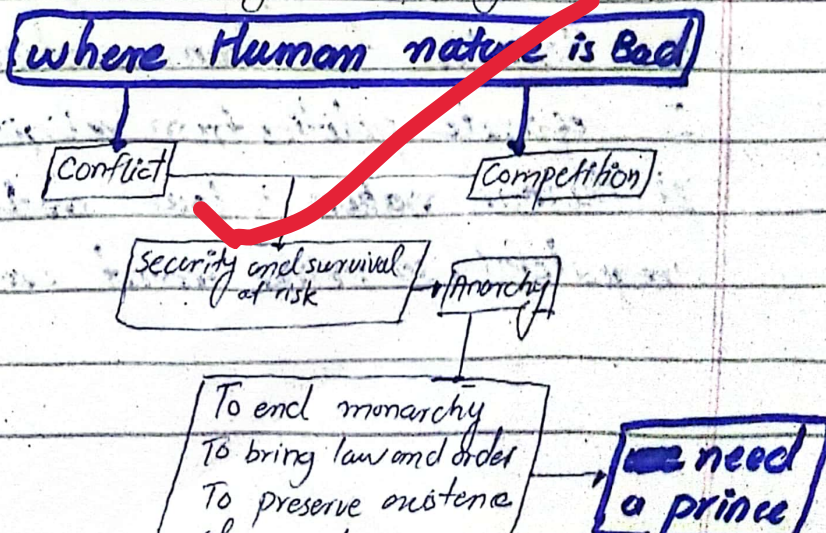 where Human nature is Bad
Conflict
Competition
Security and survival
at risk
Anarchy
To end monarchy
To bring law and order
To preserve existence
need
a prince